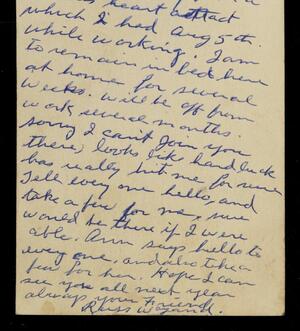 heart attact
which I had Aug 5th.
while working. I am
to remain in bed here
at home for several
weeks. will be off from
work several months.
sorry I can't Join you
there, looks like hard luck
has really hit me for sure
Tell every one hello, and
take a few for me, sure
would be there if I were
able. Ann says hello to
every one, and also take a
few for her. Hope I can
see you all next year
always your Friend.
Russ